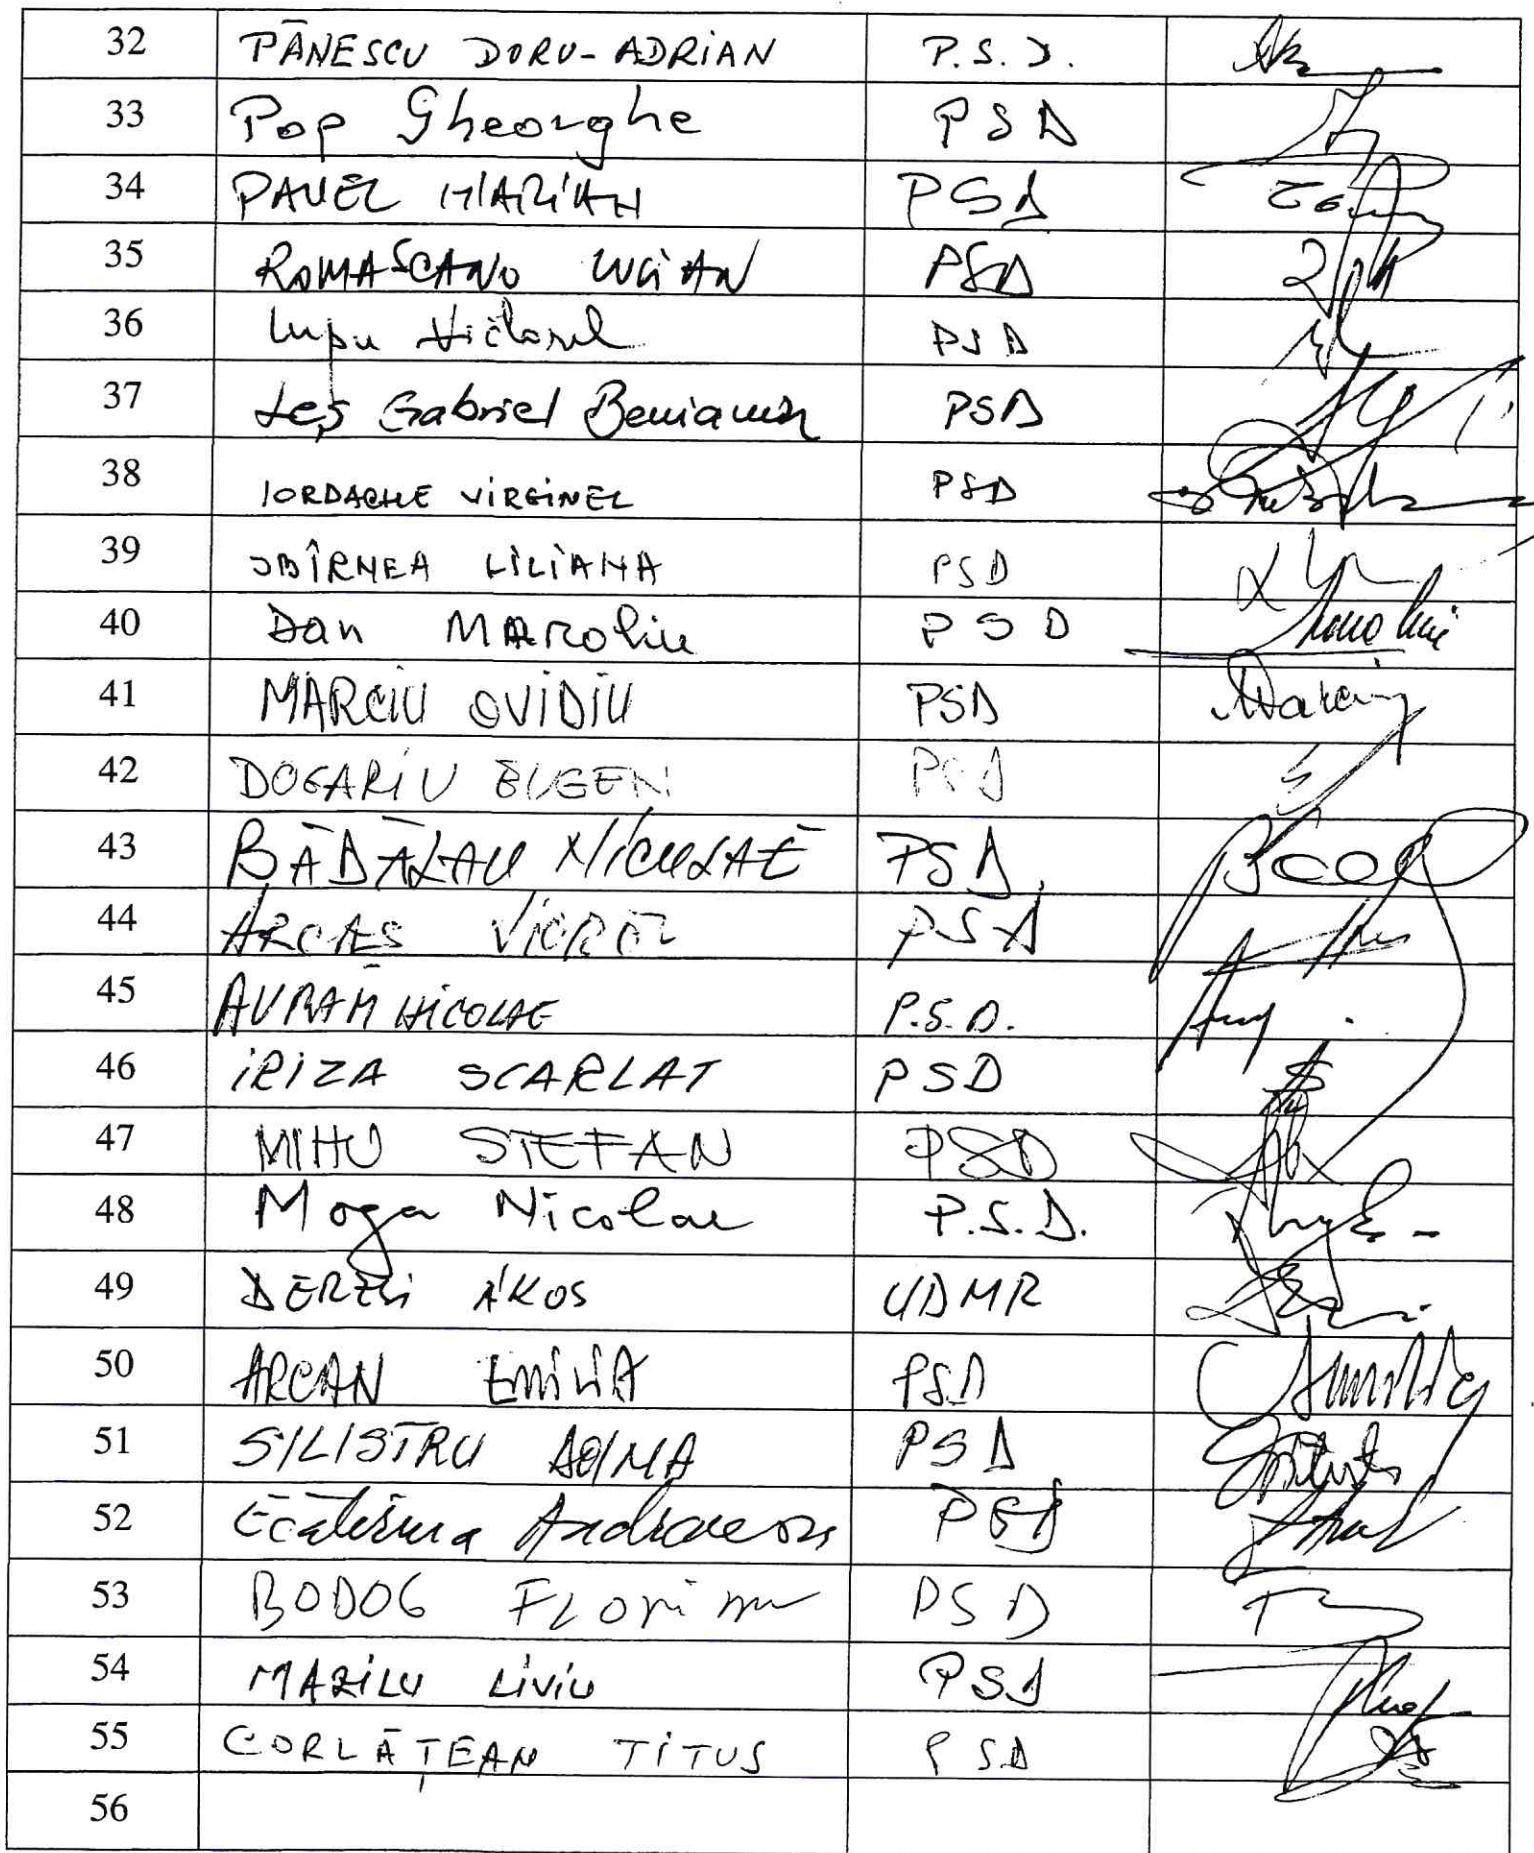 32 PĂNESCU DORU-ADRIAN P.S.D.
33 Pop Gheorghe PSD
34 PAVEL MARIAN PSD
35 ROMAȘCANU LUCIAN PSD
36 Lupu Victorel PSD
37 Leș Gabriel Beniamin PSD
38 IORDACHE VIRGINEL PSD
39 SBÎRNEA LILIANA PSD
40 Dan MANOliu PSD
41 MARCIU OVIDIU PSD
42 DOGARIU EUGEN PSD
43 BĂDĂLĂU NICULAE PSD
44 ARCAȘ VIOREL PSD
45 AVRAM NICOLAE P.S.D.
46 IRIZA SCARLAT PSD
47 MIHU STEFAN PSD
48 Moga Nicolae P.S.D.
49 DERZSI ÁKOS UDMR
50 ARCAN EMILIA PSD
51 SILISTRU DOINA PSD
52 Ecaterina Andronescu PSD
53 BODOG Florian PSD
54 MAZILU LIVIU PSD
55 CORLĂȚEAN TITUS PSD
56